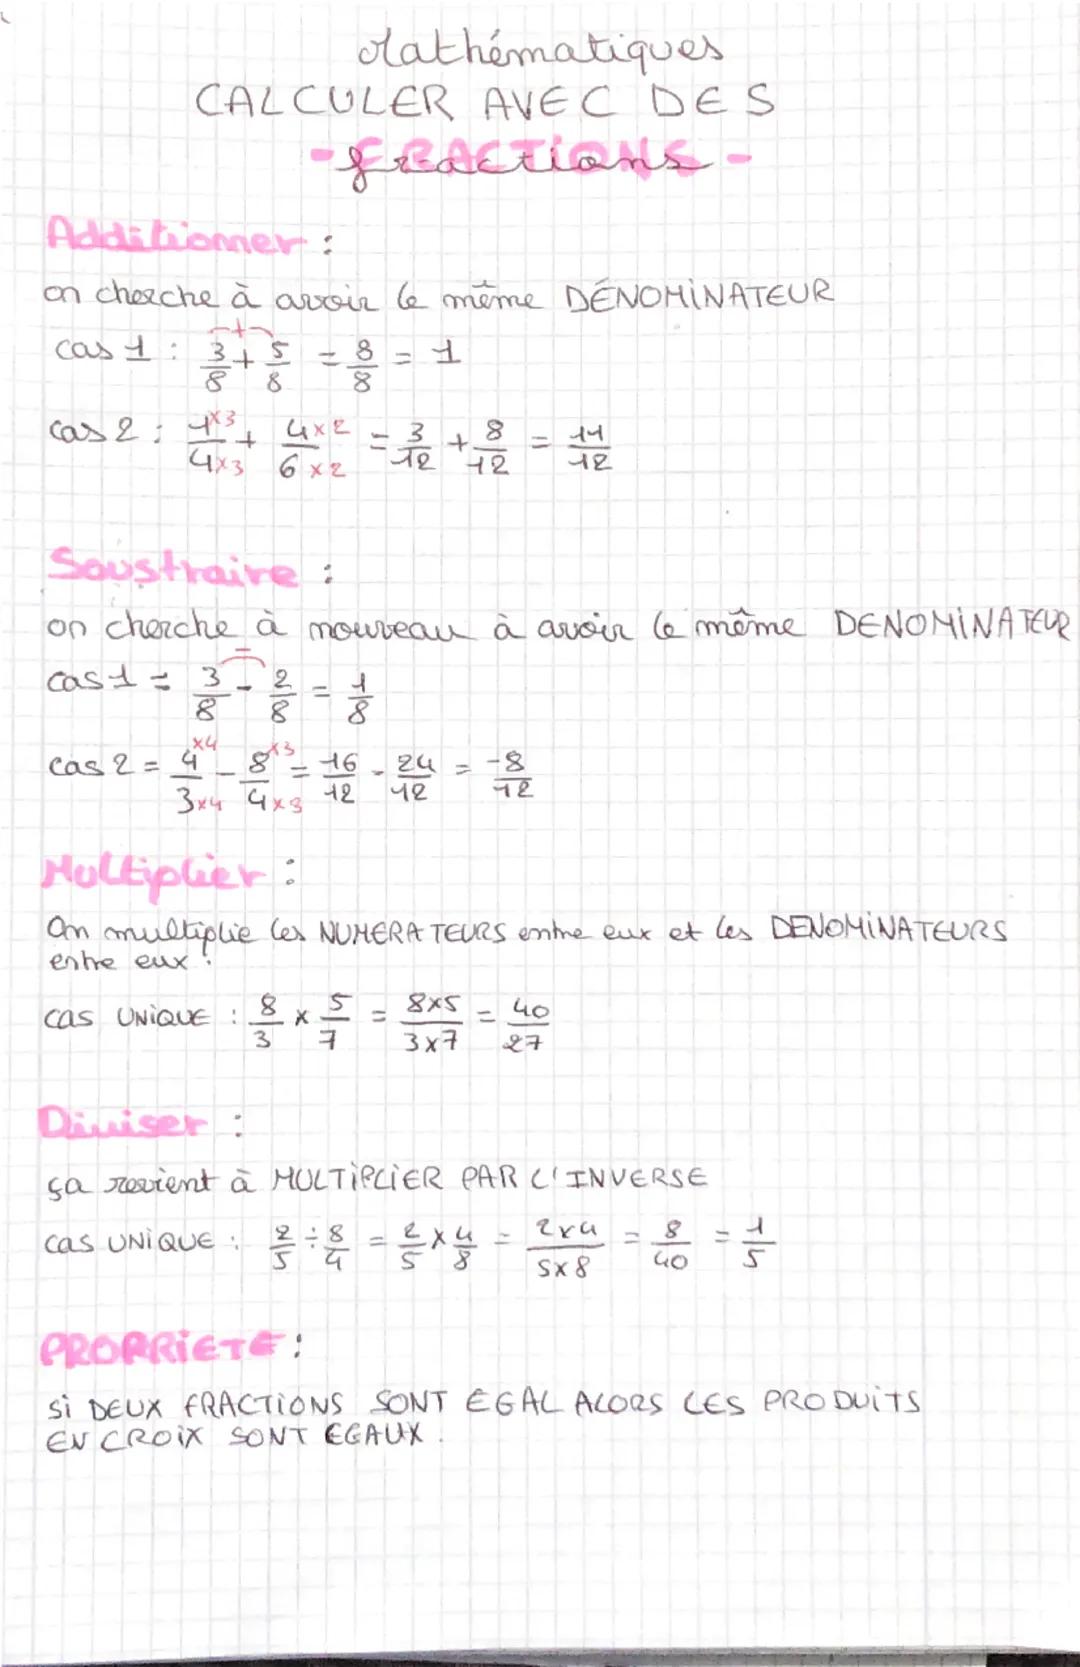 Mathématiques
CALCULER AVEC DES
- fractions -
Additionner :
on cherche à avoir le même DÉNOMINATEUR
cas 1 : 3/8 + 5/8 = 8/8 = 1
cas 2 : 1×3/4×3 + 4×2/6×2 = 3/12 + 8/12 = 11/12
Soustraire :
on cherche à nouveau à avoir le même DENOMINATEUR
cas 1 = 3/8 - 2/8 = 1/8
cas 2 = 4×4/3×4 - 8×3/4×3 = 16/12 - 24/12 = -8/12
Multiplier :
On multiplie les NUMERATEURS entre eux et les DENOMINATEURS
entre eux !
cas UNIQUE : 8/3 × 5/7 = 8×5/3×7 = 40/27
Diviser :
ça revient à MULTIPLIER PAR L'INVERSE
cas UNIQUE : 2/5 ÷ 8/4 = 2/5 × 4/8 = 2×4/5×8 = 8/40 = 1/5
PROPRIETE :
Si DEUX FRACTIONS SONT EGAL ALORS LES PRODUITS
EN CROIX SONT EGAUX.